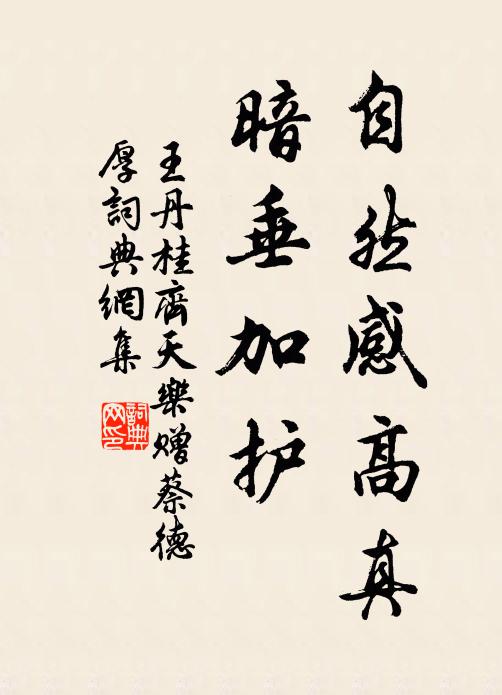 自然感高真
暗垂加护
王丹桂齊天樂赠蔡德
厚詞典網集
詞典网印